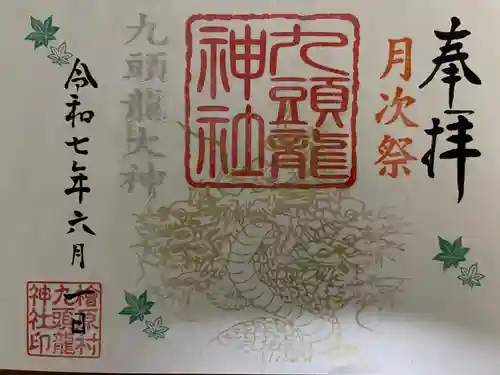 奉拝
月次祭
九頭龍
神社
九頭龍大神
令和七年六月一日
檜原村
九頭龍
神社印